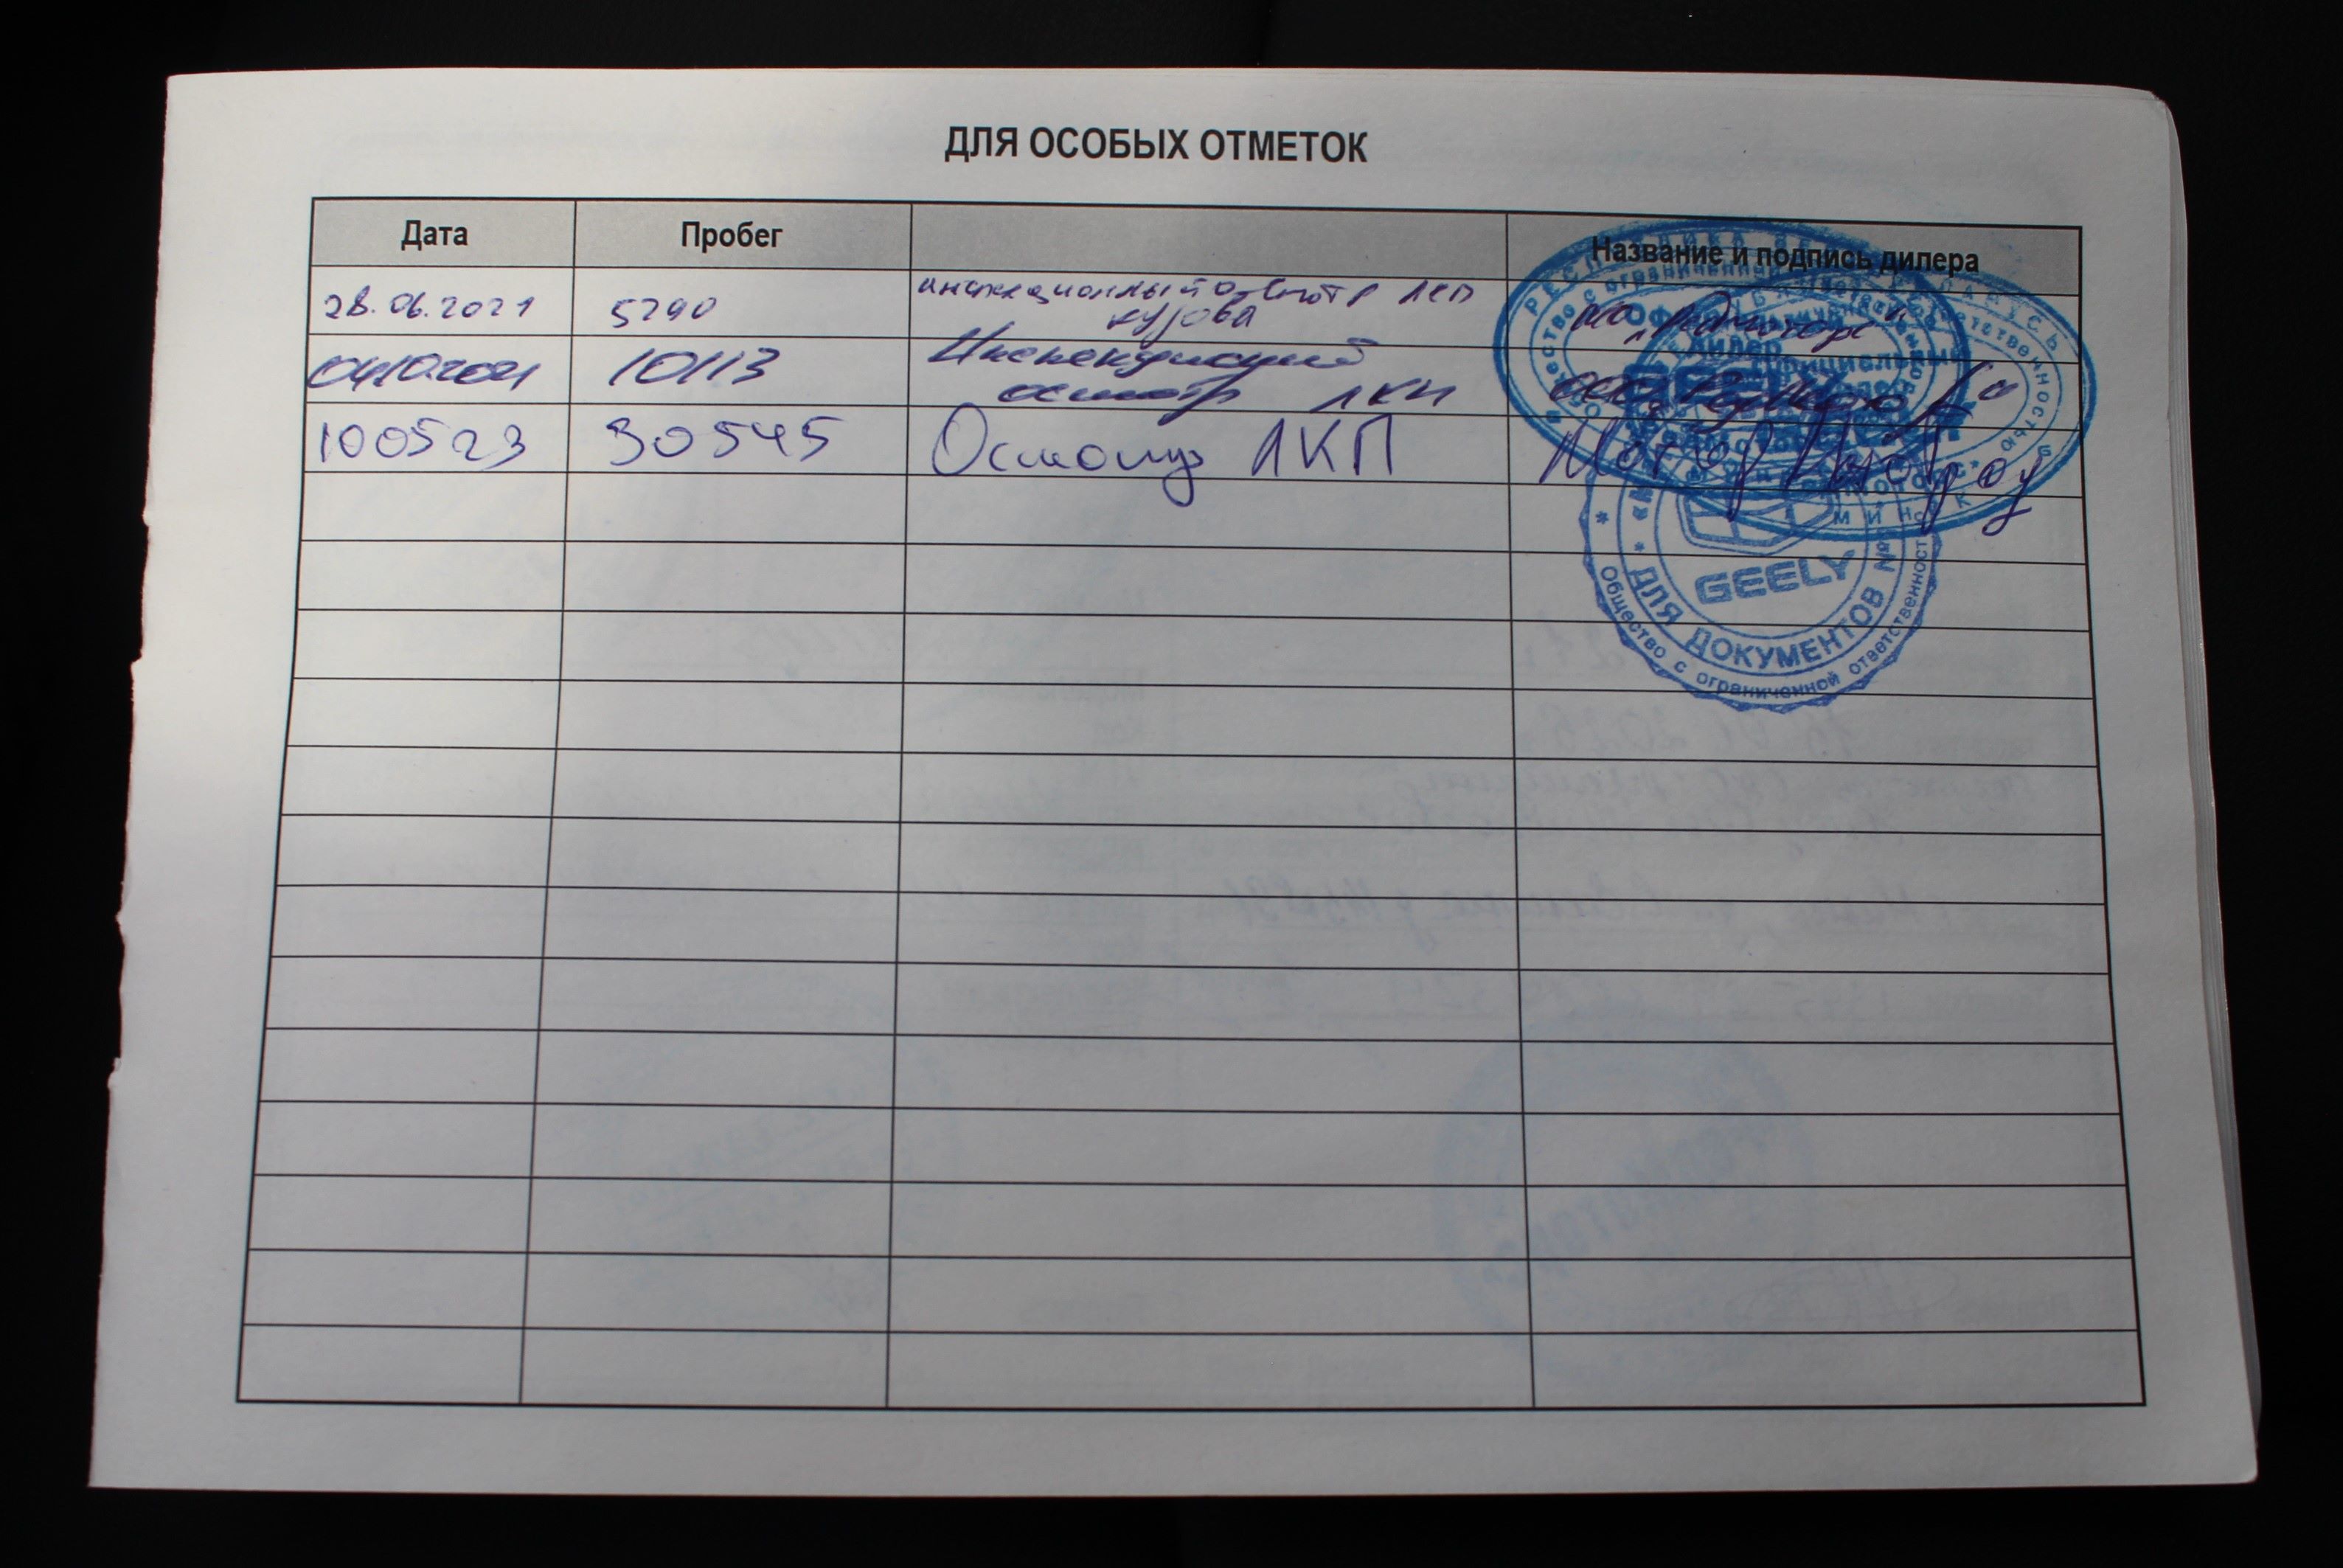 ДЛЯ ОСОБЫХ ОТМЕТОК
Дата Пробег Название и подпись дилера
28.06.2021 5290 инспекционный осмотр ЛКП
кузова
04.10.2021 10113 Инспекционный
осмотр ЛКП
100523 30545 Осмотр ЛКП Мотор
РЕСПУБЛИКА БЕЛАРУСЬ
Официальный
дилер
GEELY
МИНСК
GEELY
ДЛЯ ДОКУМЕНТОВ
Общество с ограниченной ответственностью